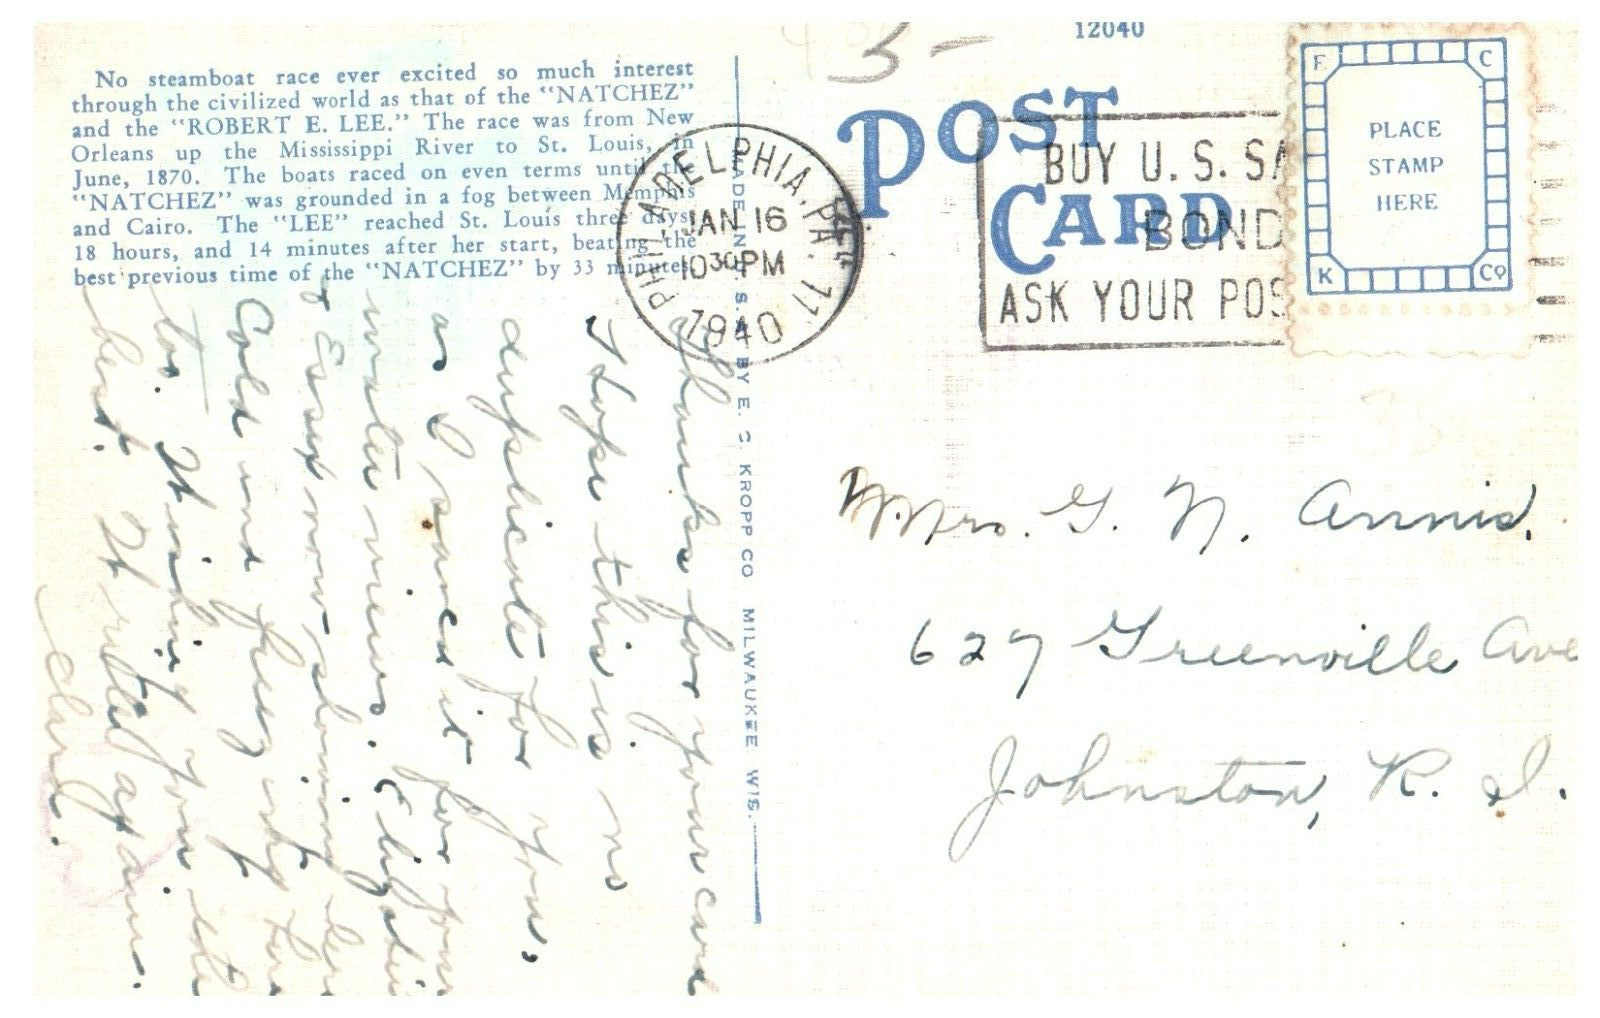 12040
No steamboat race ever excited so much interest
through the civilized world as that of the "NATCHEZ"
and the "ROBERT E. LEE." The race was from New
Orleans up the Mississippi River to St. Louis, in
June, 1870. The boats raced on even terms until the
"NATCHEZ" was grounded in a fog between Memphis
and Cairo. The "LEE" reached St. Louis three days,
18 hours, and 14 minutes after her start, beating the
best previous time of the "NATCHEZ" by 33 minutes.
Thanks for your card
I hope this is no
duplicate for you,
as I saved it for your
water views.
& Essex now - showing here
Cold and freezing here
too. Wishing you the
best. Write again.
Clara.
MADE IN U. S. A. BY E. C. KROPP CO MILWAUKEE WIS.
PHILADELPHIA, PA. 11
JAN 16
10 30 PM
1940
POST CARD
BUY U. S. SA
BOND
ASK YOUR POS
F C K Co
PLACE
STAMP
HERE
3-
Mrs. G. N. Annis.
627 Greenville Ave
Johnston, R. I.